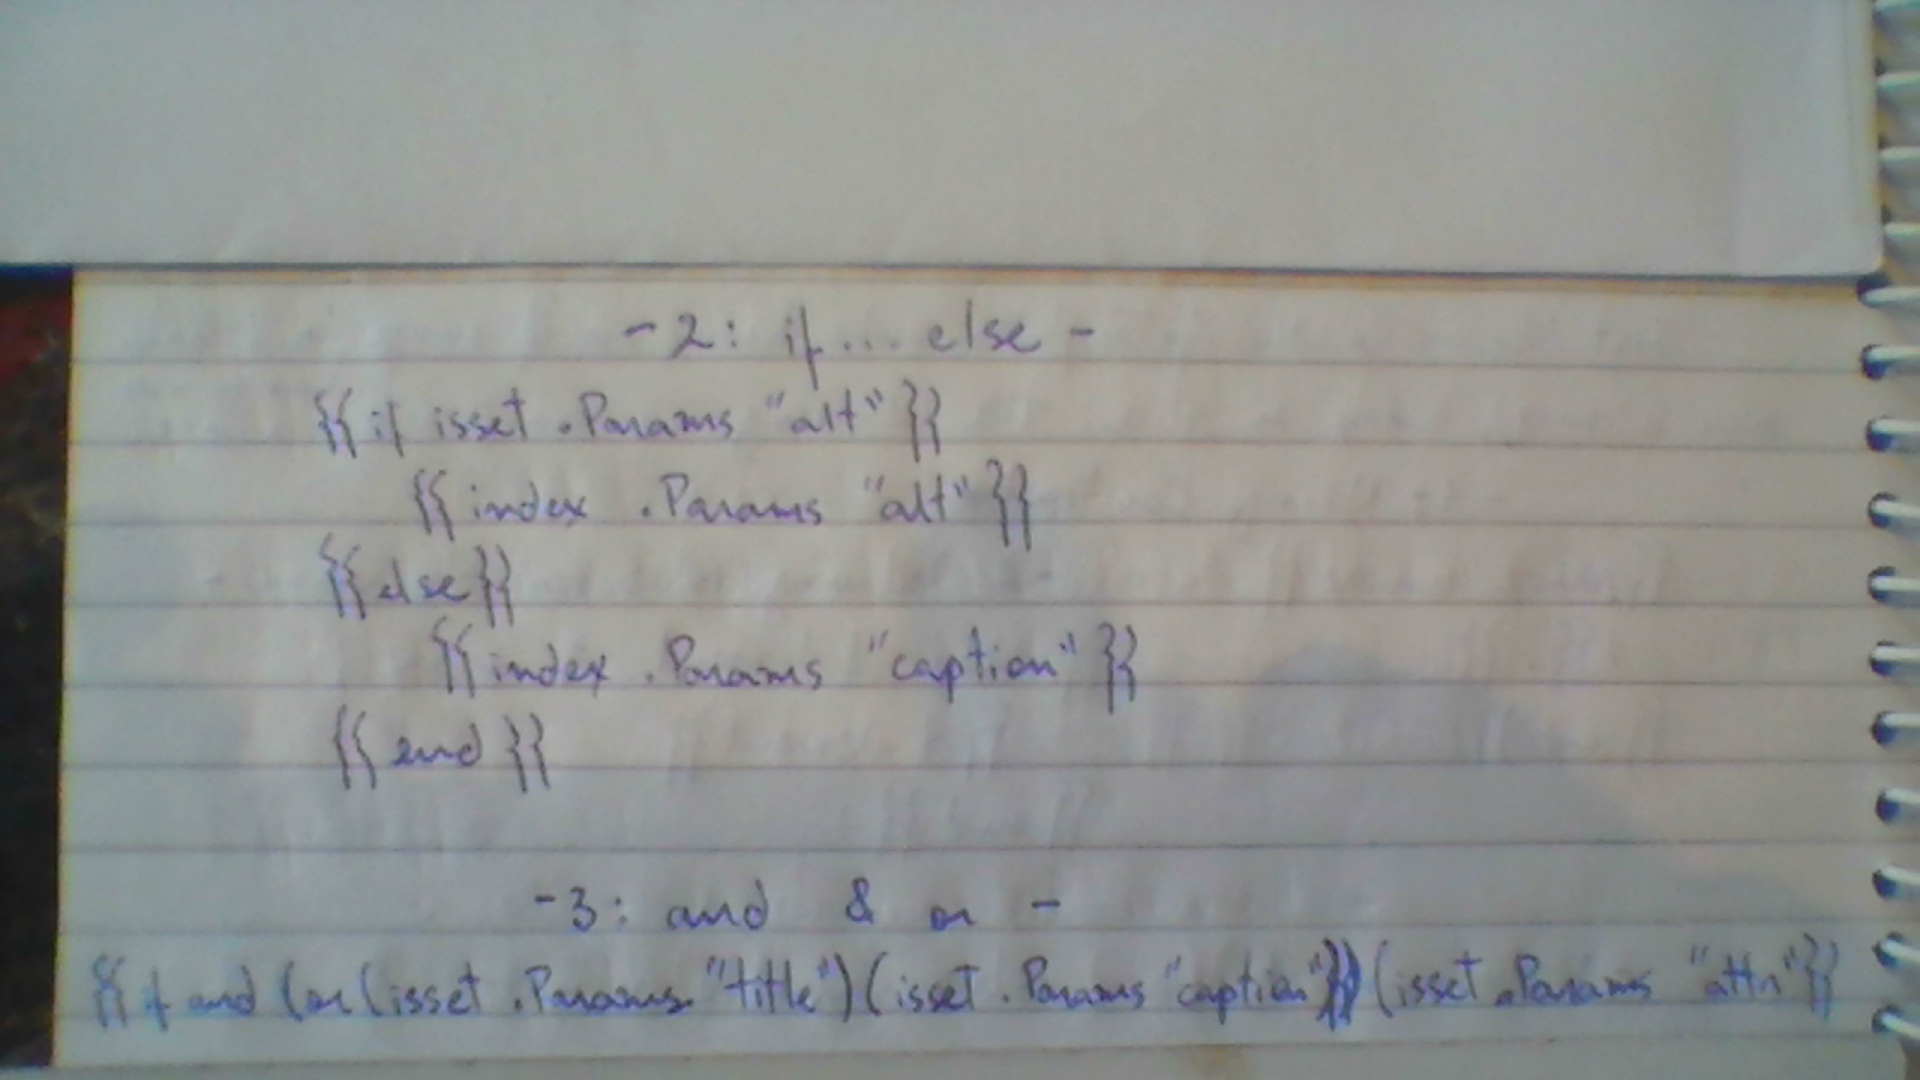 -2: if... else -
{{ if isset .Params "alt" }}
{{ index .Params "alt" }}
{{ else }}
{{ index .Params "caption" }}
{{ end }}
-3: and & or -
{{ if and (or (isset .Params "title") (isset .Params "caption")) (isset .Params "attr" }}